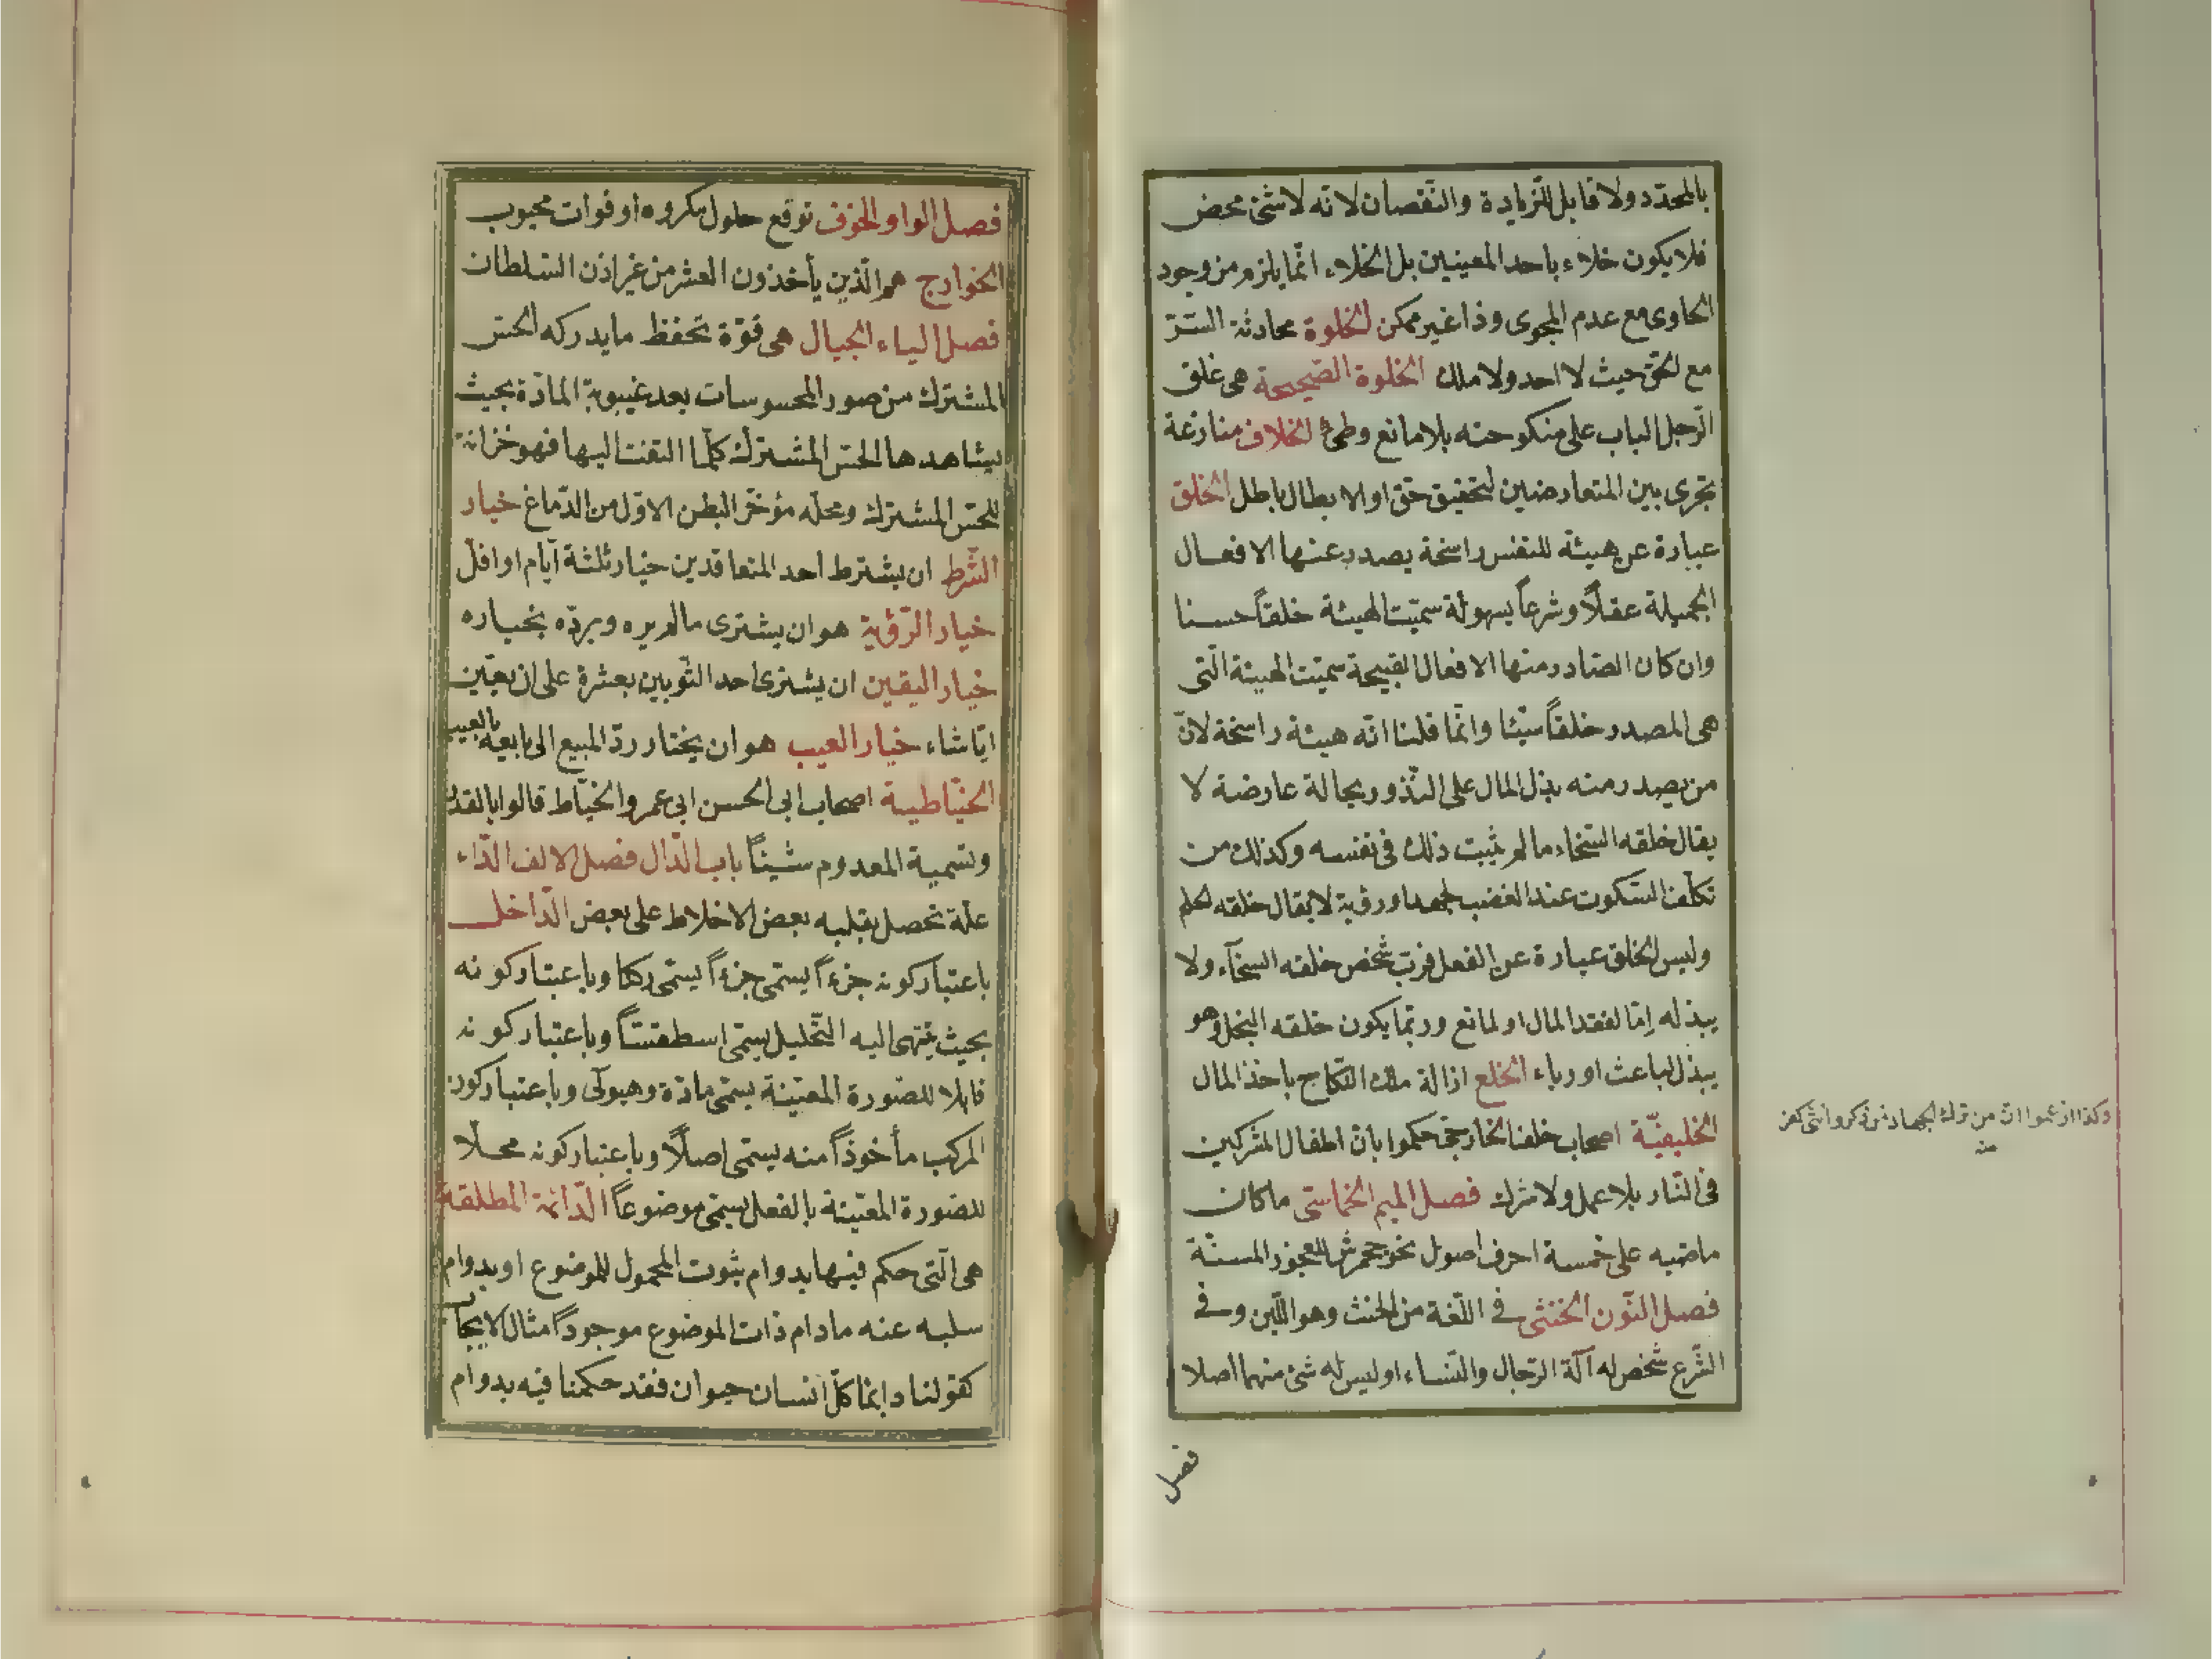 بالمحدّد ولا قابل للزيادة والنّقصان لانّه لا شئ محض
فلا يكون خلاء باحد المعينين بل الخلاء انّما يلزم من وجود
الحاوى مع عدم المحوى وذا غير ممكن الخلوة محادثة السّرّ
مع الحقّ حيث لا احد ولا ملك الخلوة الصّحيحة هى غلق
الرّجل الباب على منكوحته بلا مانع وطئ الخلاف منازعة
تجرى بين المتعارضين لتحقيق حقّ او لابطال باطل الخلق
عبارة عن هيئة للنفس راسخة يصدر عنها الافعال
الجميلة عقلاً وشرعاً بسهولة سمّيت الهيئة خلقاً حسنا
وان كان الصّادر منها الافعال القبيحة سمّيت الهيئة الّتى
هى المصدر خلقاً سيّئا وانّما قلنا انّه هيئة راسخة لانّ
من يصدر منه بذل المال على النّذور بحالة عارضة لا
يقال خلقه السّخاء ما لم يثبت ذلك فى نفسه وكذلك من
تكلّف السّكوت عند الغضب لجهد او رؤية لا يقال خلقه الحلم
وليس الخلق عبارة عن الفعل فربّ شخص خلقه السخآء ولا
يبذل له إمّا لفقد المال او لمانع وربّما يكون خلقه البخل وهو
يبذل لباعث او رياء الخلع ازالة ملك النّكاح باخذ المال
الخليفيّة اصحاب خلف الخارجىّ حكموا بان اطفال المشركين
فى النّار بلا عمل ولا شرك فصل الميم الخماسىّ ما كان
ماضيه على خمسة احرف اصول نحو جحمرش للعجوز المسنّة
فصل النّون الخنثى فى اللّغة من الخنث وهو اللّين وفى
الشّرع شخص له آلة الرّجال والنّساء او ليس له شئ منهما اصلا
فصل
وكذا ازعموا انّ من ترك الجهاد من ذكر وانثى كفر
منه
فصل الواو الخوف توقع حلول مكروه او فوات محبوب
الخوارج هم الّذين يأخذون العشر من غير اذن السّلطان
فصل الياء الخيال هى قوّة تحفظ ما يدركه الحسّ
المشترك من صور المحسوسات بعد غيبوبة المادّة بحيث
يشاهدها الحسّ المشترك كلّما التفت اليها فهو خزانة
للحسّ المشترك ومحلّه مؤخّر البطن الاوّل من الدّماغ خيار
الشّرط ان يشترط احد المتعاقدين خيار ثلثة ايّام او اقلّ
خيار الرّؤية هو ان يشترى ما لم يره ويردّه بخياره
خيار اليقين ان يشترى احد الثّوبين بعشرة على ان يعيّن
ايّا شاء خيار العيب هو ان يختار ردّ المبيع الى بايعه بالعيب
الخيّاطيّة اصحاب ابى الحسن ابى عمر والخيّاط قالوا بالقدر
وتسمية المعدوم شيئاً باب الدّال فصل الالف الدّاء
علّة تحصل بغلبه بعض الاخلاط على بعض الدّاخل
باعتبار كونه جزءاً يسمّى جزءاً يسمّى ركنا وباعتبار كونه
بحيث ينتهى اليه التّحليل يسمّى اسطقسّاً وباعتبار كونه
قابلا للصّورة المعيّنة يسمّى مادّة وهيولى وباعتبار كون
المركب مأخوذاً منه يسمّى اصلاً وباعتبار كونه محلّا
للصّورة المعيّنة بالفعل يسمّى موضوعاً الدّائمة المطلقة
هى الّتى حكم فيها بدوام ثبوت المحمول للموضوع او بدوام
سلبه عنه مادام ذات الموضوع موجوداً مثال الايجاب
كقولنا دائما كلّ انسان حيوان فقد حكمنا فيه بدوام